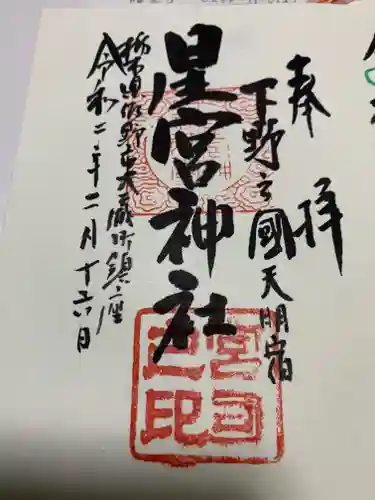 奉拝
下野之國天明宿
星宮神社
栃木県佐野市大蔵町鎮座
令和二年二月十六日
宮司之印